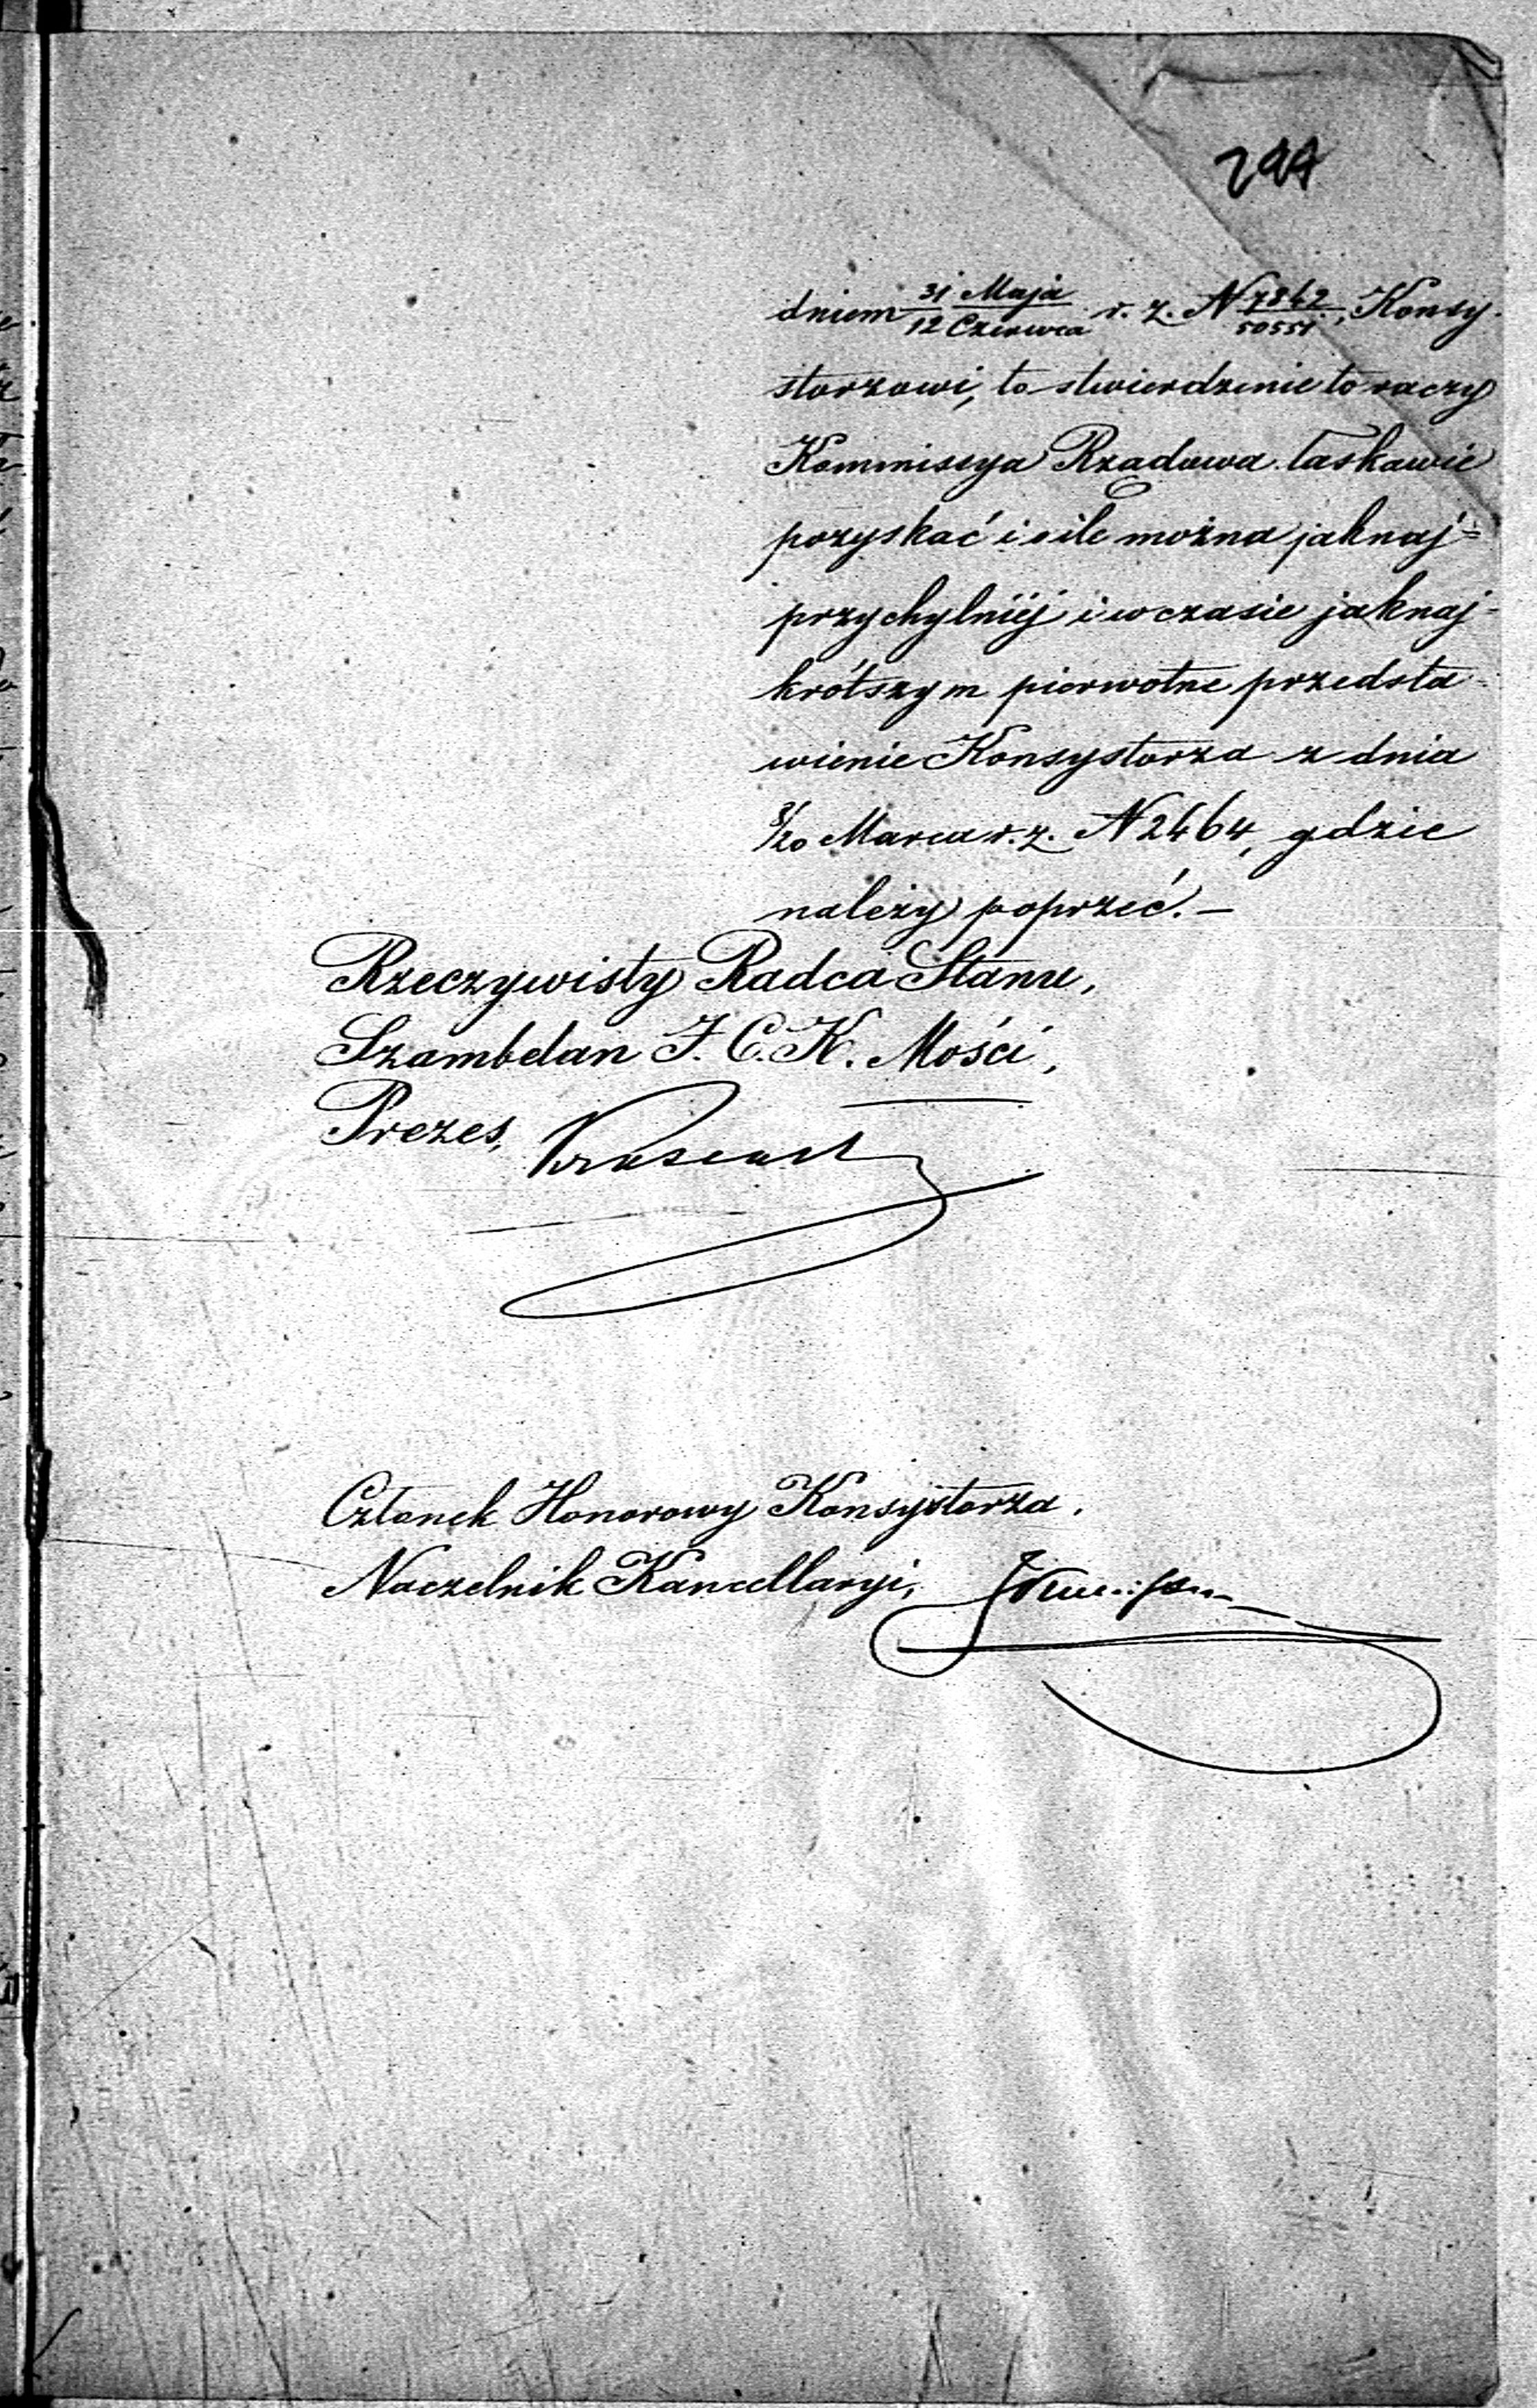 299
dniem 31 Maja / 12 Czerwca r. z. N 7862 / 50551, Konsy-
storzowi, to stwierdzenie to raczy
Kommissya Rządowa łaskawie
pozyskać i o ile można jaknaj=
przychylniéj i w czasie jaknaj-
krótszym pierwotne przedsta-
wienie Konsystorza z dnia
8/20 Marca r. z. N 2464, gdzie
należy poprzeć. —
Rzeczywisty Radca Stanu,
Szambelan J. C. K. Mości,
Prezes,
Członek Honorowy Konsystorza,
Naczelnik Kancellaryi,